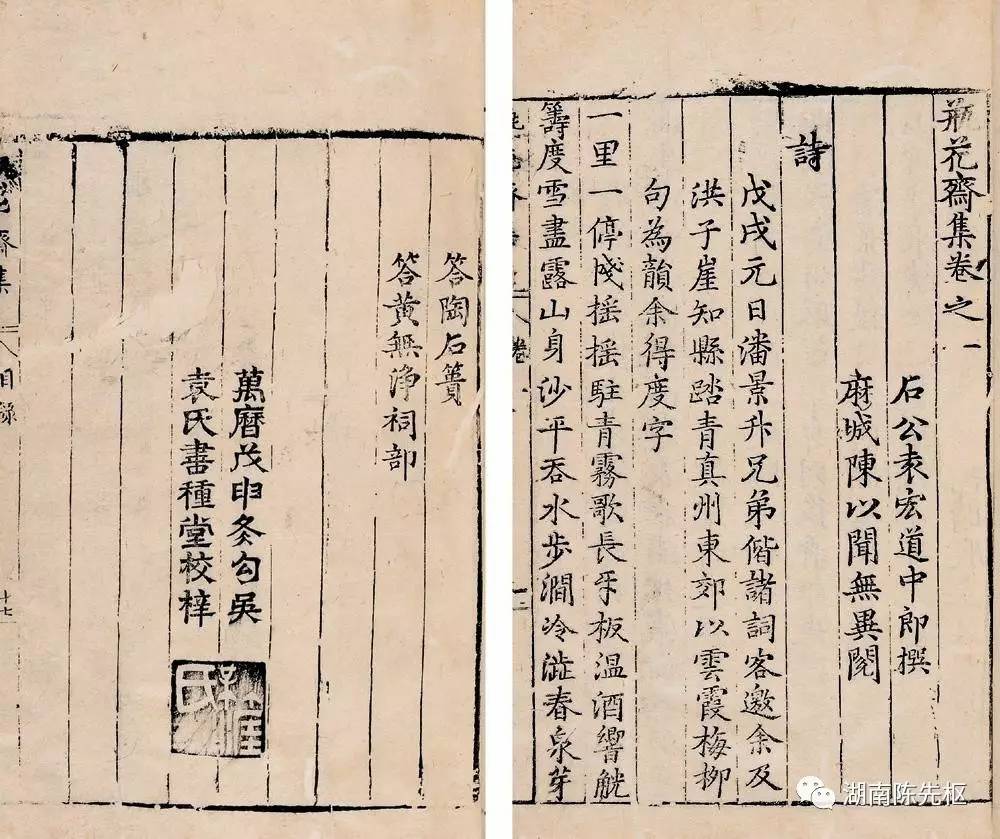 瓶花齋集卷之一
石公袁宏道中郎撰
麻城陳以聞無異閱
詩
戊戌元日潘景升兄弟偕諸詞客邀余及
洪子崖知縣踏青真州東郊以雲霞梅柳
句為韻余得度字
一里一停橈搖搖駐青霧歌長牙板溫酒響觥
籌度雪盡露山身沙平吞水步澗冷澁春泉芽
卷一
答陶石簣
答黃無淨祠部
萬曆戊申冬勾吳
袁氏書種堂校梓
花齋集
目錄
十七
湖南陈先枢